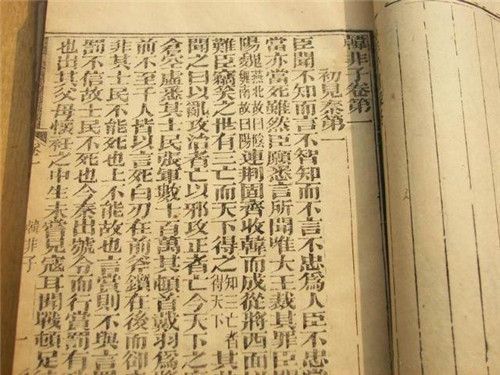 韓非子卷第一
初見秦第一
臣聞不知而言不智知而不言不忠爲人臣不忠
當亦當死雖然臣願悉言所聞唯大王裁其罪臣聞
陽魏燕北故曰陰魏南故曰陽連荊固齊收韓而成從將西面
難臣竊笑之世有三亡而天下得之知三亡者得天下其
聞之曰以亂攻治者亡以邪攻正者亡今天下之
倉空虛悉其士民張軍數十百萬其頓首戴羽爲將
前不至千人皆以言死白刃在前斧鑕在後而卻
非其士民不能死也上不能故也言賞則不與言
罰不信故士民不死也今秦出號令而行賞罰有
也出其父母懷衽之中生未嘗見寇耳聞戰頓足
韓非子